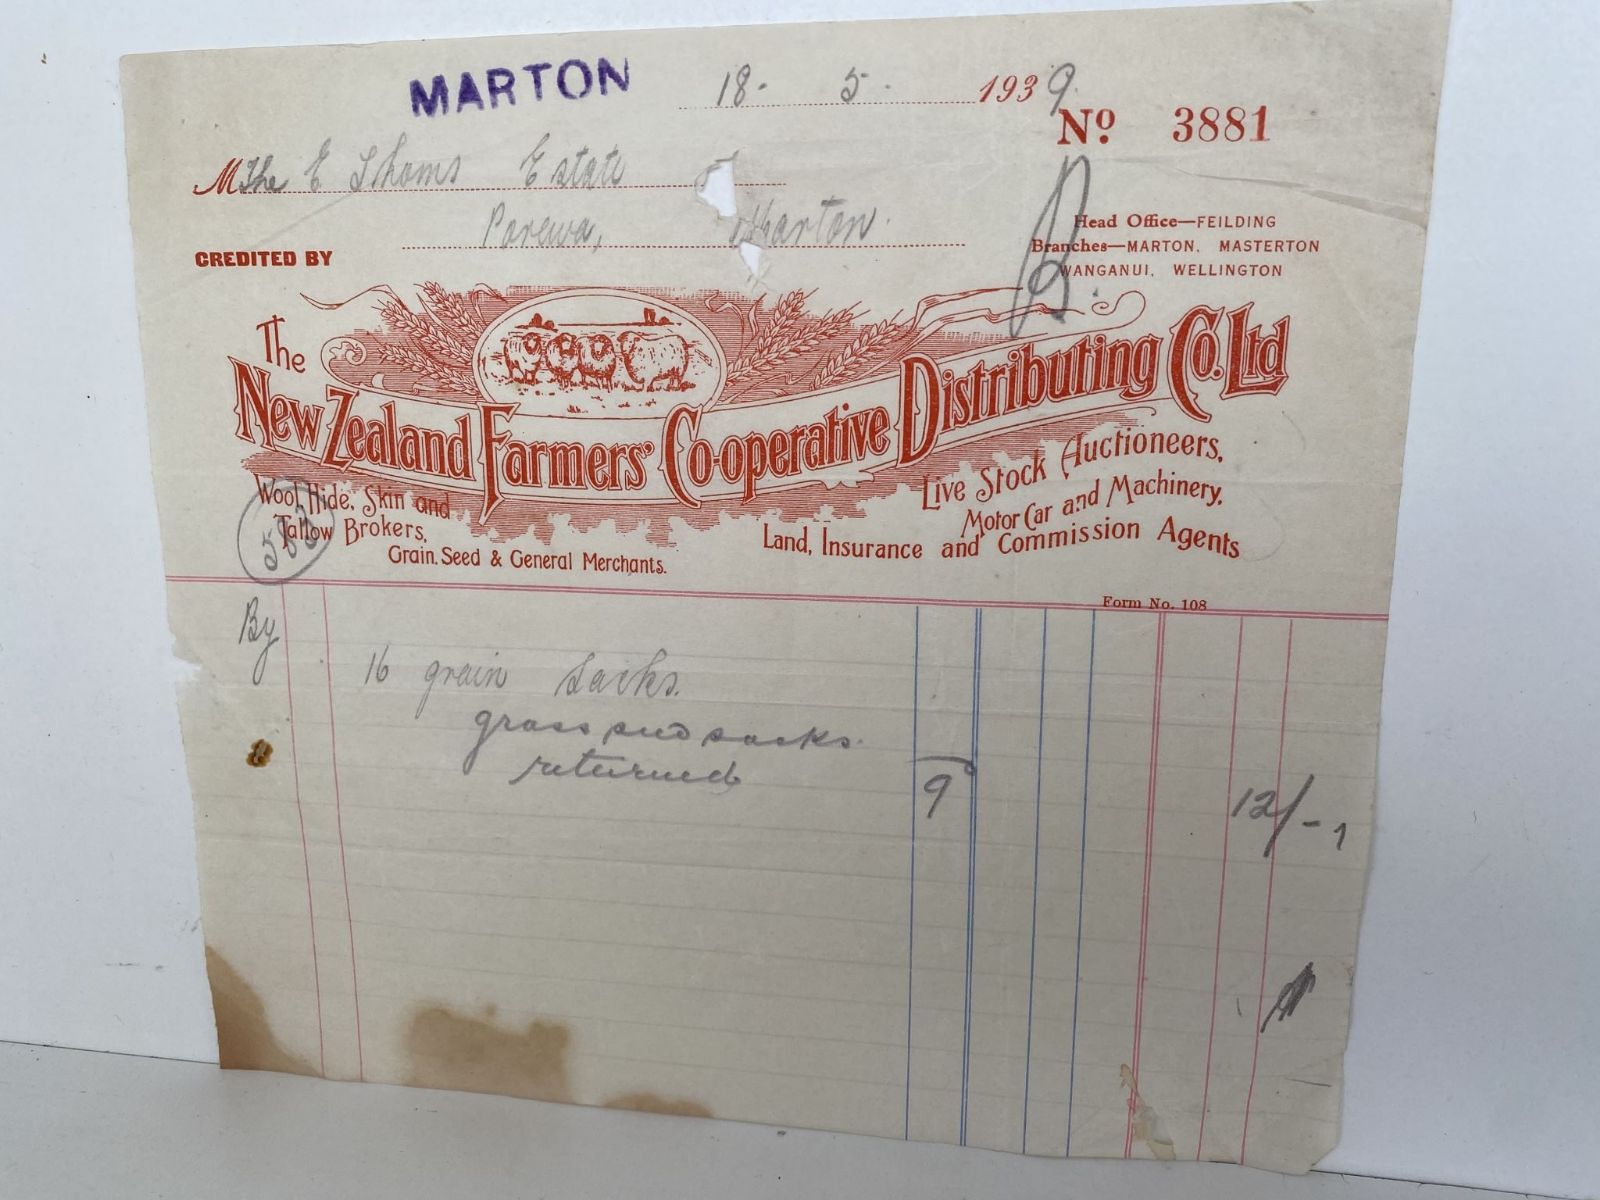 MARTON 18 - 5 - 1939
Nº 3881
M The E Thoms Estate
Porewa, Marton.
CREDITED BY
Head Office—FEILDING
Branches—MARTON, MASTERTON
WANGANUI, WELLINGTON
The
New Zealand Farmers' Co-operative Distributing Co. Ltd
Wool, Hide, Skin and
Tallow Brokers,
Grain, Seed & General Merchants.
Live Stock Auctioneers,
Motor Car and Machinery,
Land, Insurance and Commission Agents
Form No. 108
By
16 grain sacks.
grass seed sacks.
returned 9 12/-